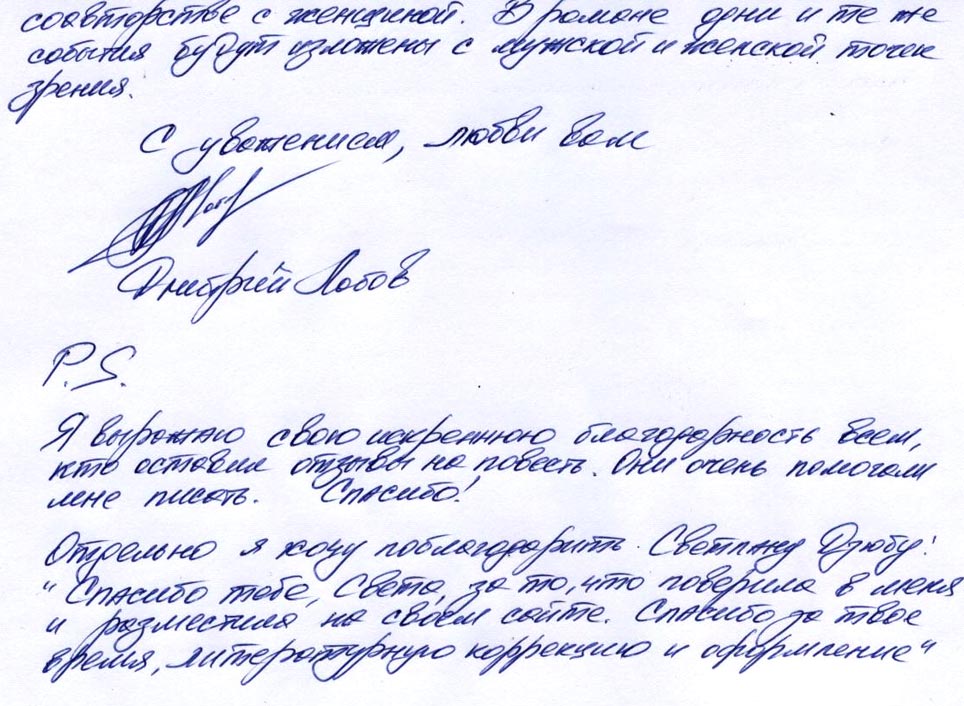 соавторстве с женщиной. В романе одни и те же
события будут изложены с мужской и женской точек
зрения.
С уважением, любви вам
Дмитрий Лобов
P.S.
Я выражаю свою искреннюю благодарность всем,
кто оставил отзывы на повесть. Они очень помогали
мне писать. Спасибо!
Отдельно я хочу поблагодарить Светлану Дзюбу:
"Спасибо тебе, Света, за то, что поверила в меня
и разместила на своём сайте. Спасибо за твоё
время, литературную коррекцию и оформление"